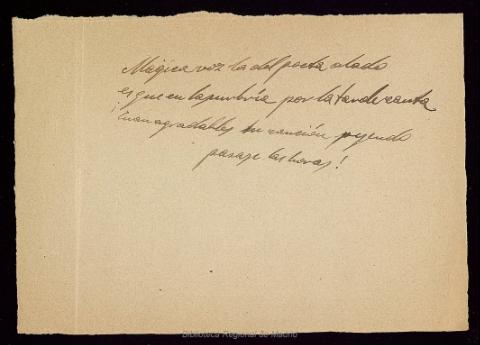 Mágica voz la del poeta alado
es que en la umbría por la tarde canta
¡Cuan agradables su canción oyendo
pasaje las horas!
Biblioteca Regional de Madrid